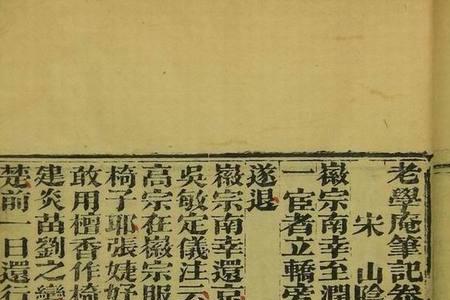 老學庵筆記卷
宋 山陰
徽宗南幸至潤
一宦者立轎旁
遂退
徽宗南幸還京
吳敏定儀注云
高宗在徽宗服
椅子耶張婕妤
敢用檀香作椅
建炎苗劉之變
楚前一日還行